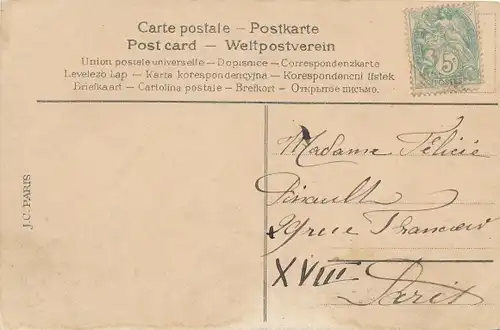 Carte postale – Postkarte
Post card – Weltpostverein
Union postale universelle – Dopisnice – Correspondenzkarte
Levelezo Lap – Karta korespondencyjna – Korespondencni listek
Briefkaart – Cartolina postale – Brefkort – Открытое письмо.
5c
J.C. PARIS
Madame Félicie
29 rue
XVIII
Paris